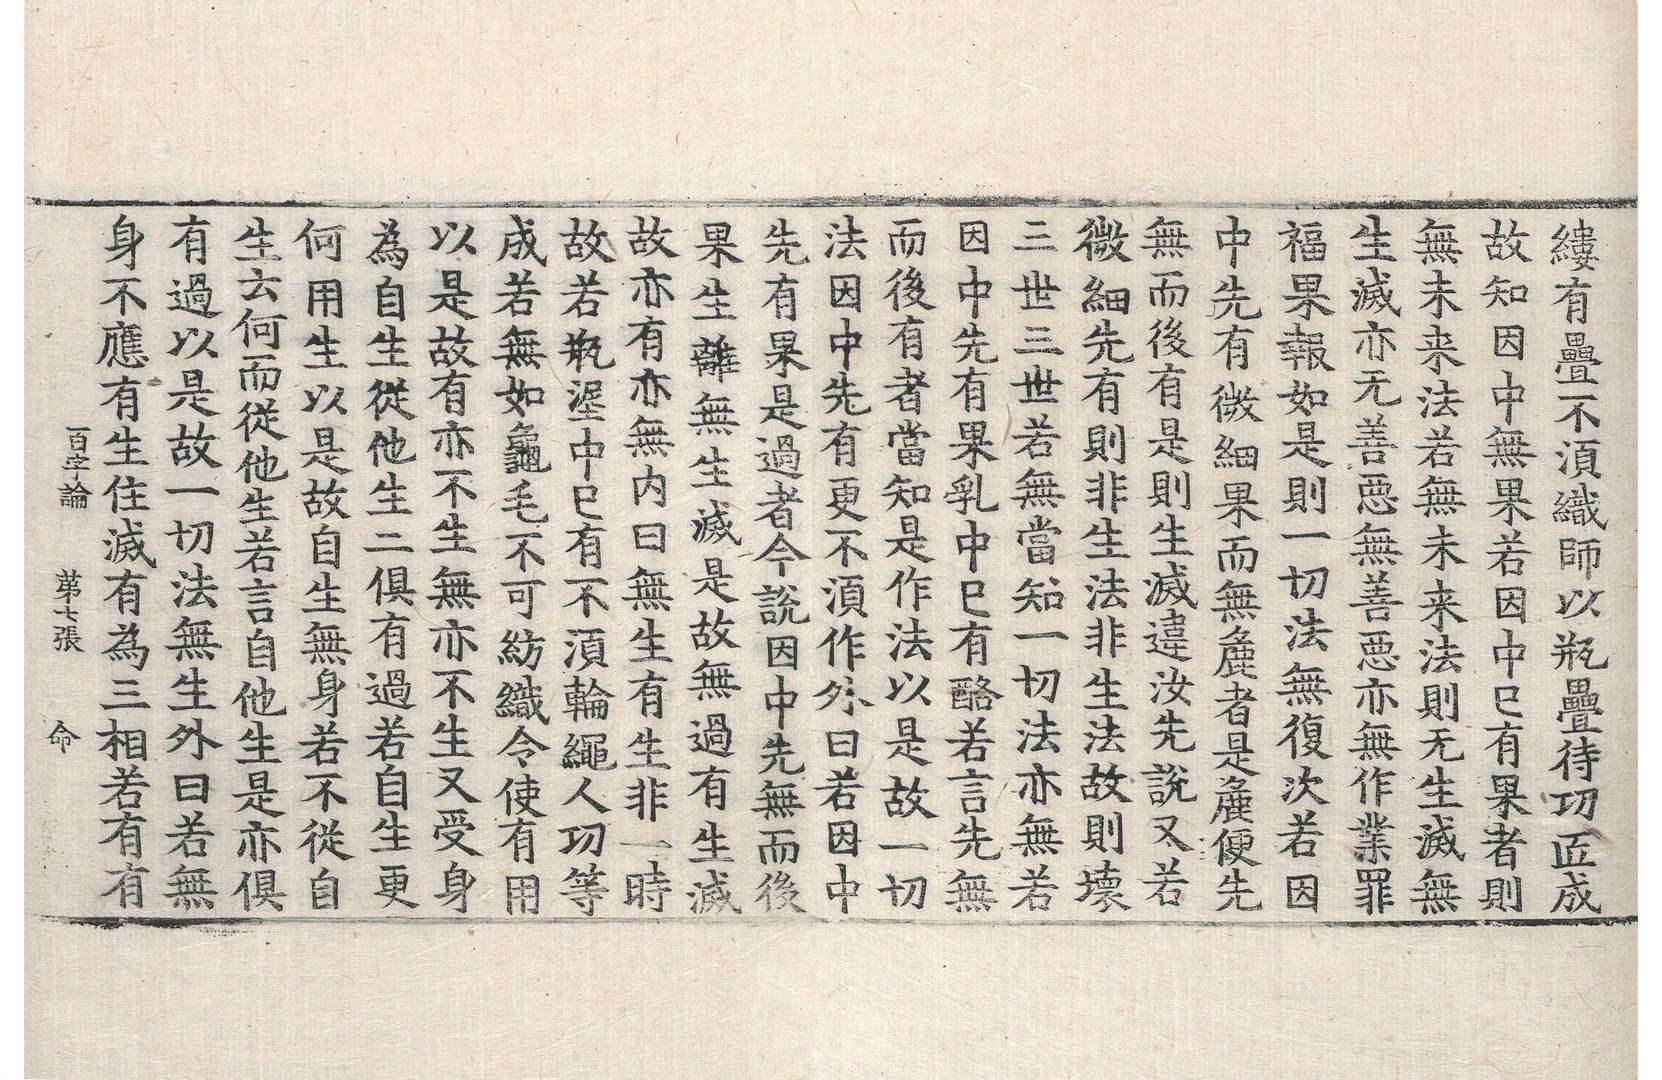 縷有疊不湏織師以瓶疊待功匠成
故知因中無果若因中已有果者則
無未来法若無未来法則无生滅無
生滅亦无善惡無善惡亦無作業罪
福果報如是則一切法無復次若因
中先有微細果而無麁者是麁便先
無而後有是則生滅違汝先說又若
微細先有則非生法非生法故則壞
三世三世若無當知一切法亦無若
因中先有果乳中已有酪若言先無
而後有者當知是作法以是故一切
法因中先有更不湏作外曰若因中
先有果是過者今說因中先無而後
果生離無生滅是故無過有生滅
故亦有亦無内曰無生有生非一時
故若瓶埿中已有不湏輪繩人功等
成若無如龜毛不可紡織令使有用
以是故有亦不生無亦不生又受身
為自生從他生二俱有過若自生更
何用生以是故自生無身若不從自
生云何而從他生若言自他生是亦俱
有過以是故一切法無生外曰若無
身不應有生住滅有為三相若有有
百字論 苐七張 命